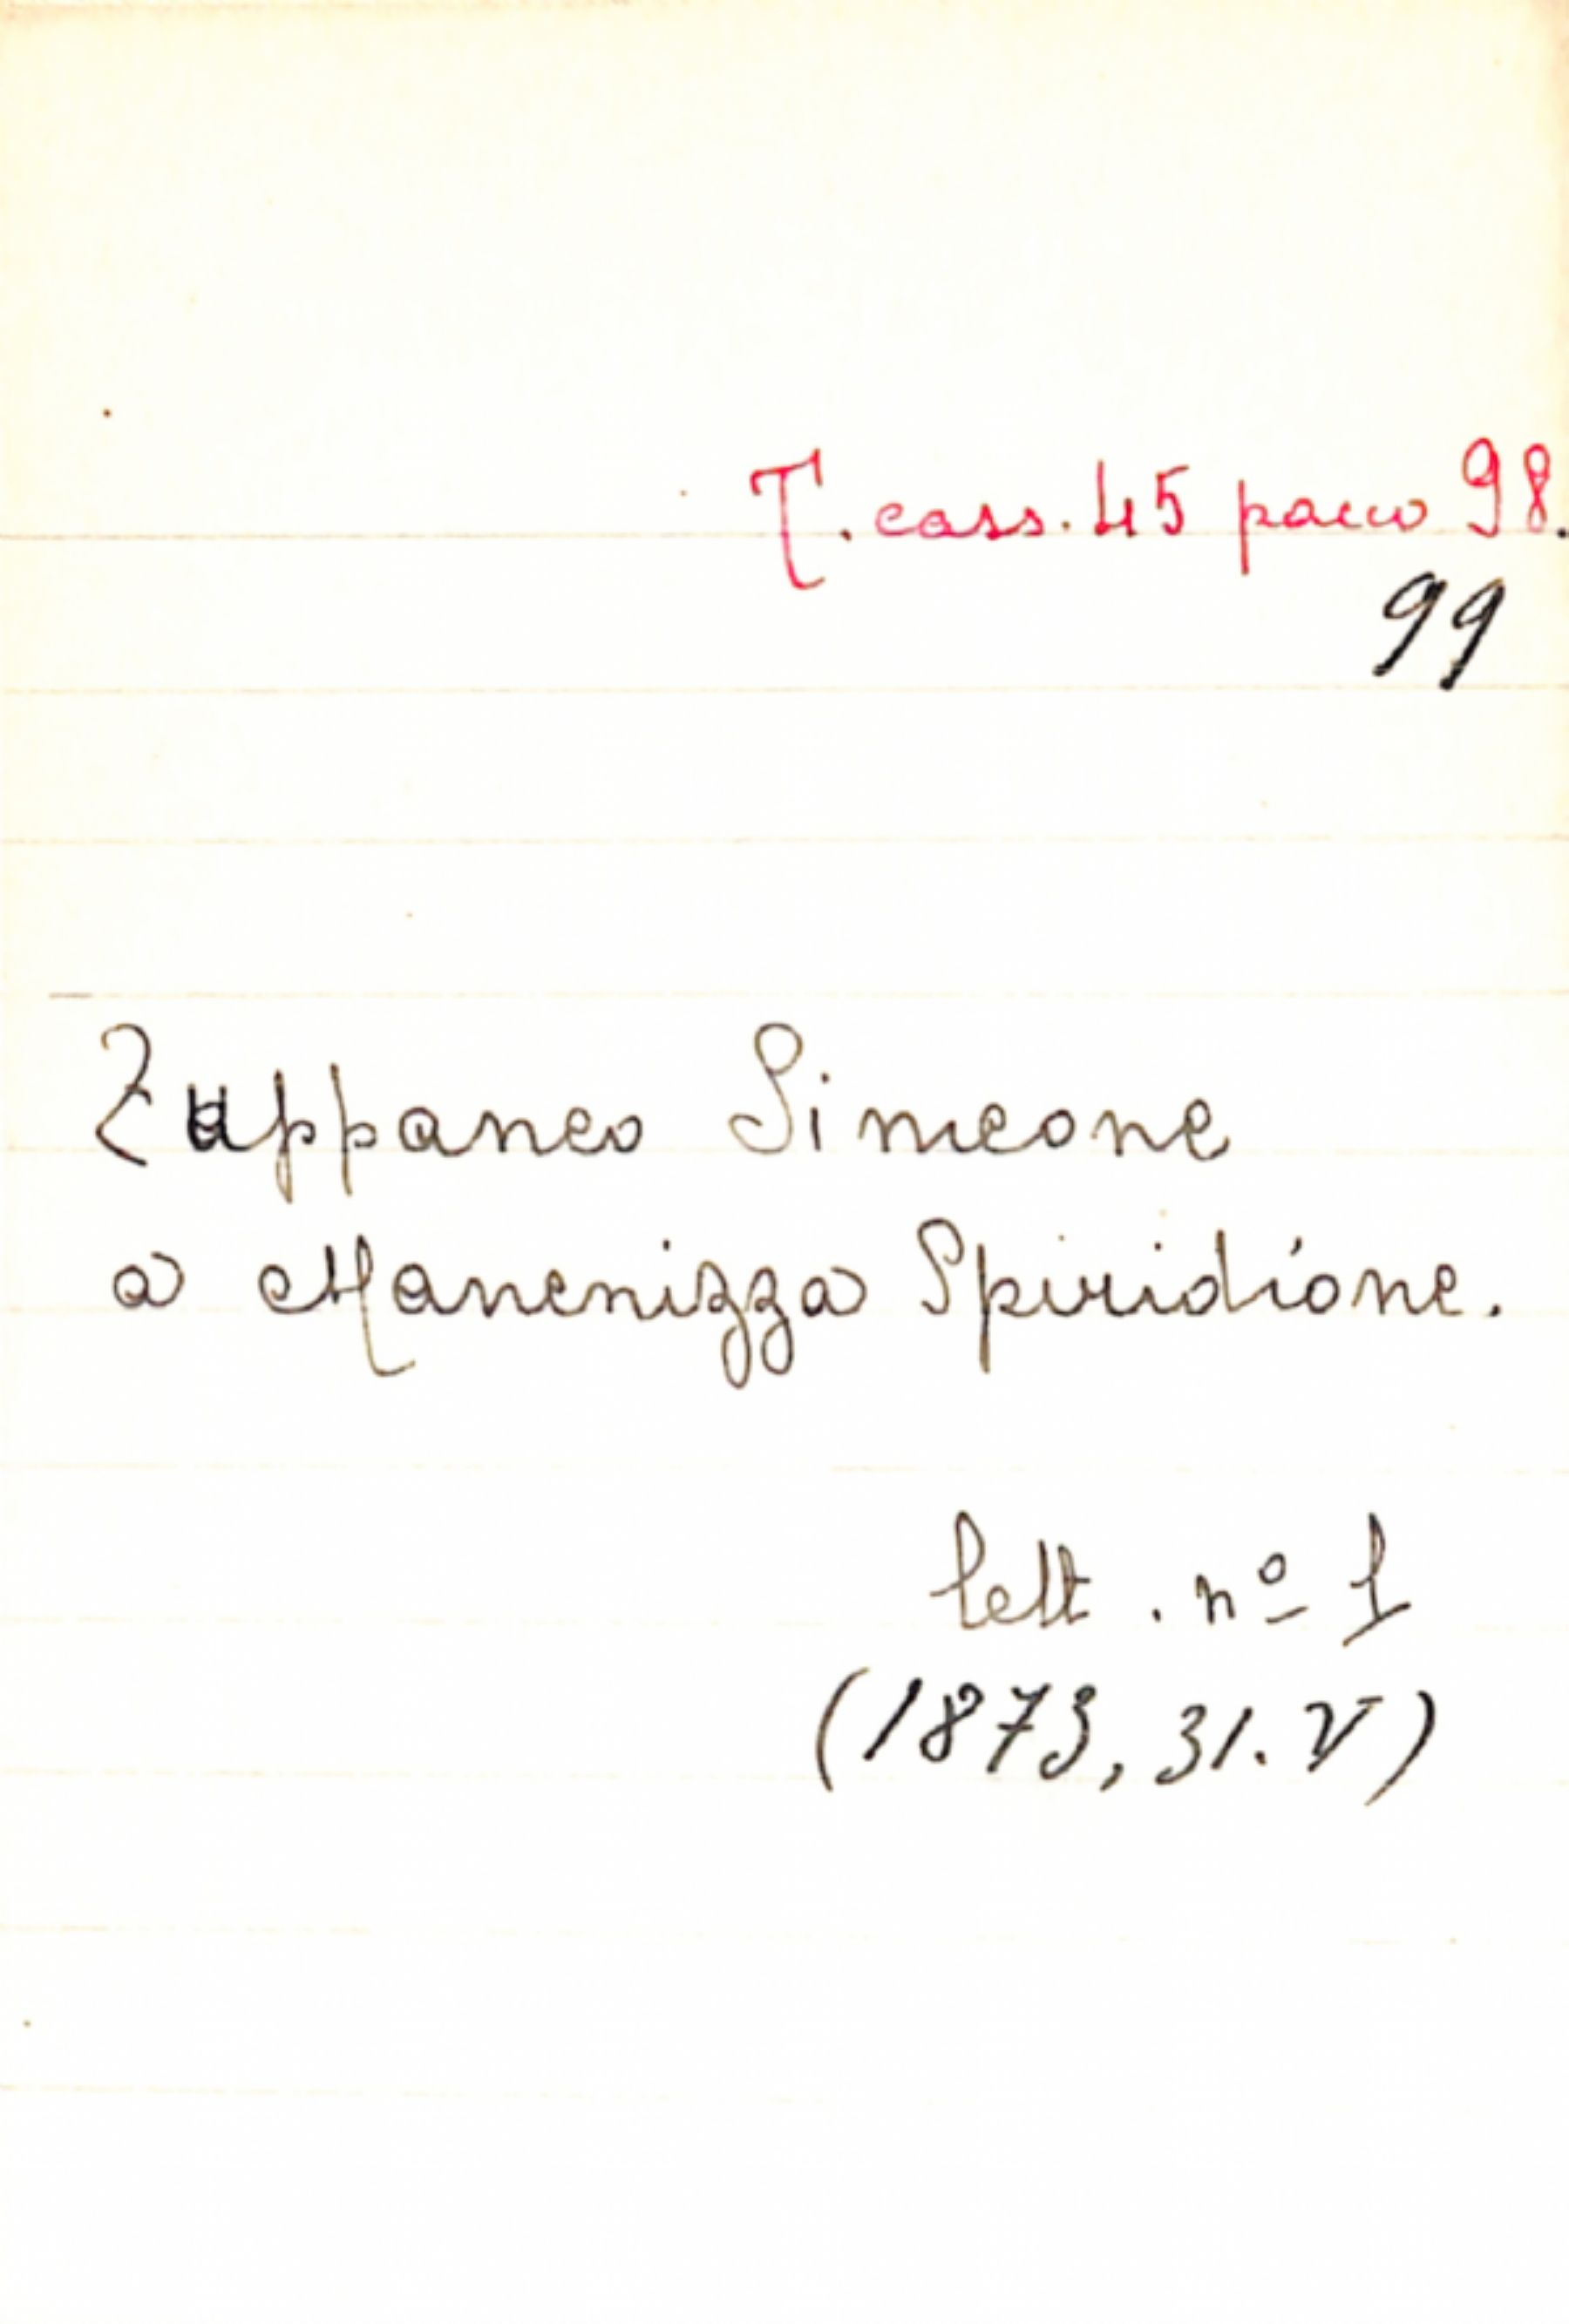 T. cass. 45 pacco 98.
99
Zappaneo Simeone
a Manenizza Spiridione.
lett. nº 1
(1873, 31. V)